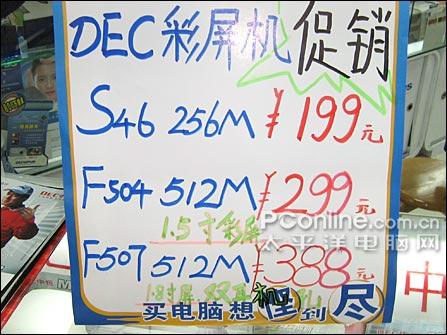 DEC彩屏机 促销
S46 256M ¥199元
F504 512M ¥299元
1.5寸彩屏
PConline.com.cn
太平洋电脑网
F507 512M ¥388元
1.8寸屏 双耳机孔
买电脑想到尽
DEC
中